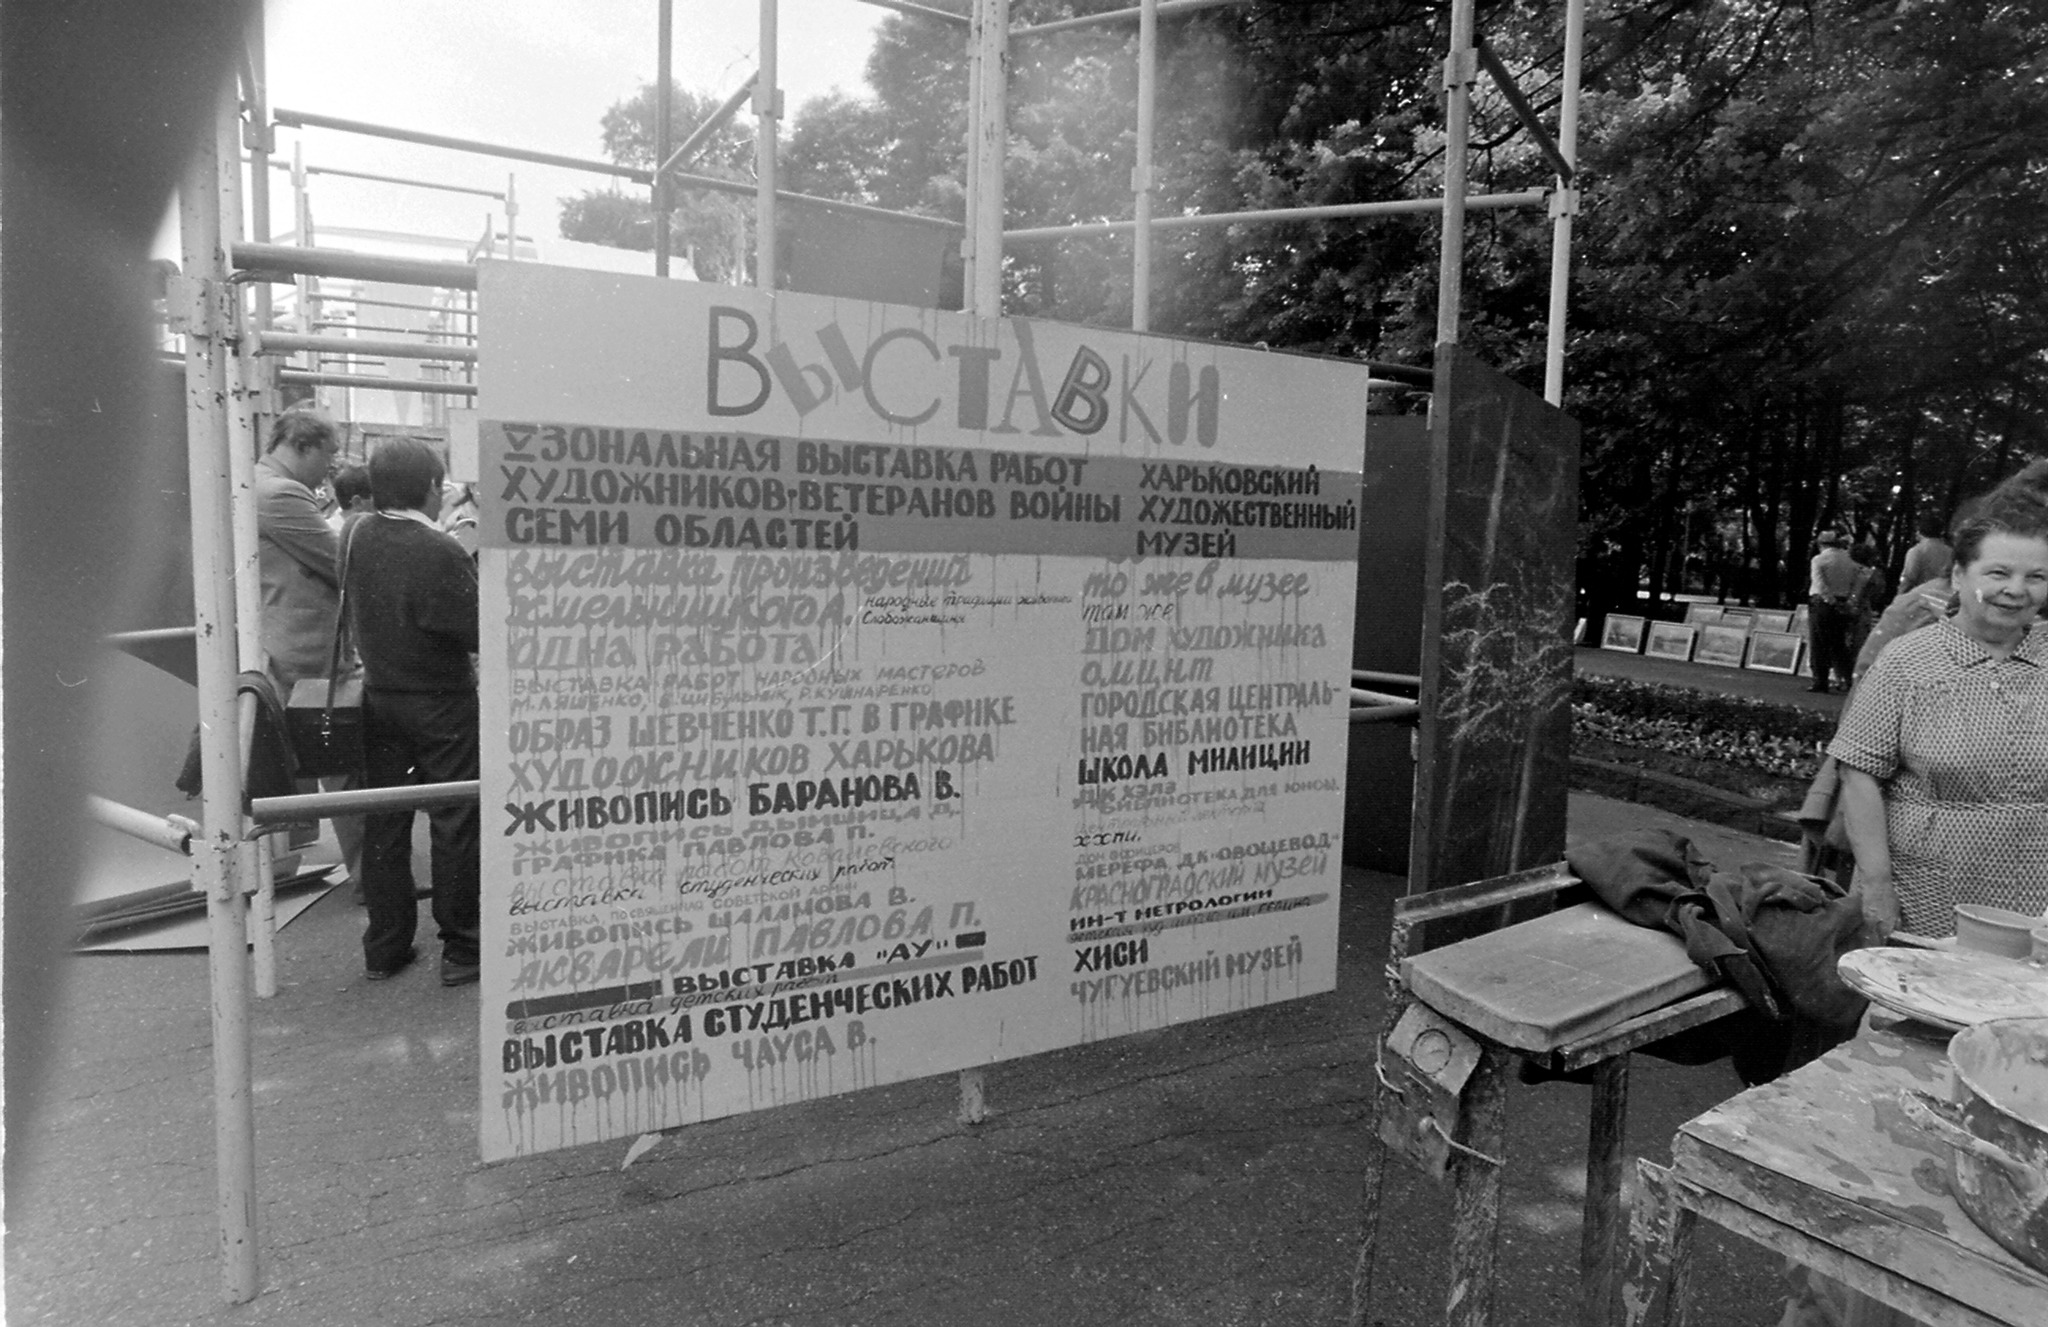 ВЫСТАВКИ
V ЗОНАЛЬНАЯ ВЫСТАВКА РАБОТ
ХУДОЖНИКОВ-ВЕТЕРАНОВ ВОЙНЫ
СЕМИ ОБЛАСТЕЙ
ХАРЬКОВСКИЙ
ХУДОЖЕСТВЕННЫЙ
МУЗЕЙ
выставка произведений
Хмельницкого А.
народные традиции живописи
Слобожанщины
ОДНА РАБОТА
ВЫСТАВКА РАБОТ НАРОДНЫХ МАСТЕРОВ
М. ЛЯШЕНКО, В. ЦИБУЛЬНИК, Р. КУШНАРЕНКО
ОБРАЗ ШЕВЧЕНКО Т.Г. В ГРАФИКЕ
ХУДОЖНИКОВ ХАРЬКОВА
ЖИВОПИСЬ БАРАНОВА В.
ЖИВОПИСЬ ДЫМШИЦА Д.
ГРАФИКА ПАВЛОВА П.
выставка работ Ковалевского
выставка студенческих работ
ВЫСТАВКА, ПОСВЯЩЕННА СОВЕТСКОЙ АРМИИ
ЖИВОПИСЬ ШАЛАМОВА В.
АКВАРЕЛИ ПАВЛОВА П.
ВЫСТАВКА "АУ"
выставка детских работ
ВЫСТАВКА СТУДЕНЧЕСКИХ РАБОТ
ЖИВОПИСЬ ЧАУСА В.
то же в музее
там же
ДОМ ХУДОЖНИКА
ОМЦНТ
ГОРОДСКАЯ ЦЕНТРАЛЬ-
НАЯ БИБЛИОТЕКА
ШКОЛА МИЛИЦИИ
ДК ХЭЛЗ
БИБЛИОТЕКА ДЛЯ ЮНОШ.
Центральный лекторий
ХХПИ.
ДОМ ОФИЦЕРОВ
МЕРЕФА ДК "ОВОЩЕВОД"
КРАСНОГРАДСКИЙ МУЗЕЙ
ИН-Т МЕТРОЛОГИИ
ХИСИ
ЧУГУЕВСКИЙ МУЗЕЙ